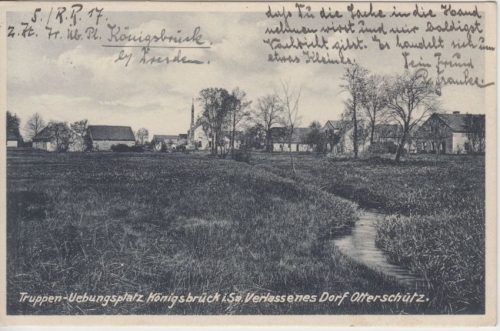 5./R.R. 17.
z. Zt. Tr. Üb. Pl. Königsbrück
b/ Dresden.
daß Du die Sache in die Hand
nehmen wirst und mir baldigst
Nachricht gibst. Es handelt sich um
etwas Kleines.
Dein Freund
Truppen-Uebungsplatz Königsbrück i. Sa. Verlassenes Dorf Otterschütz.